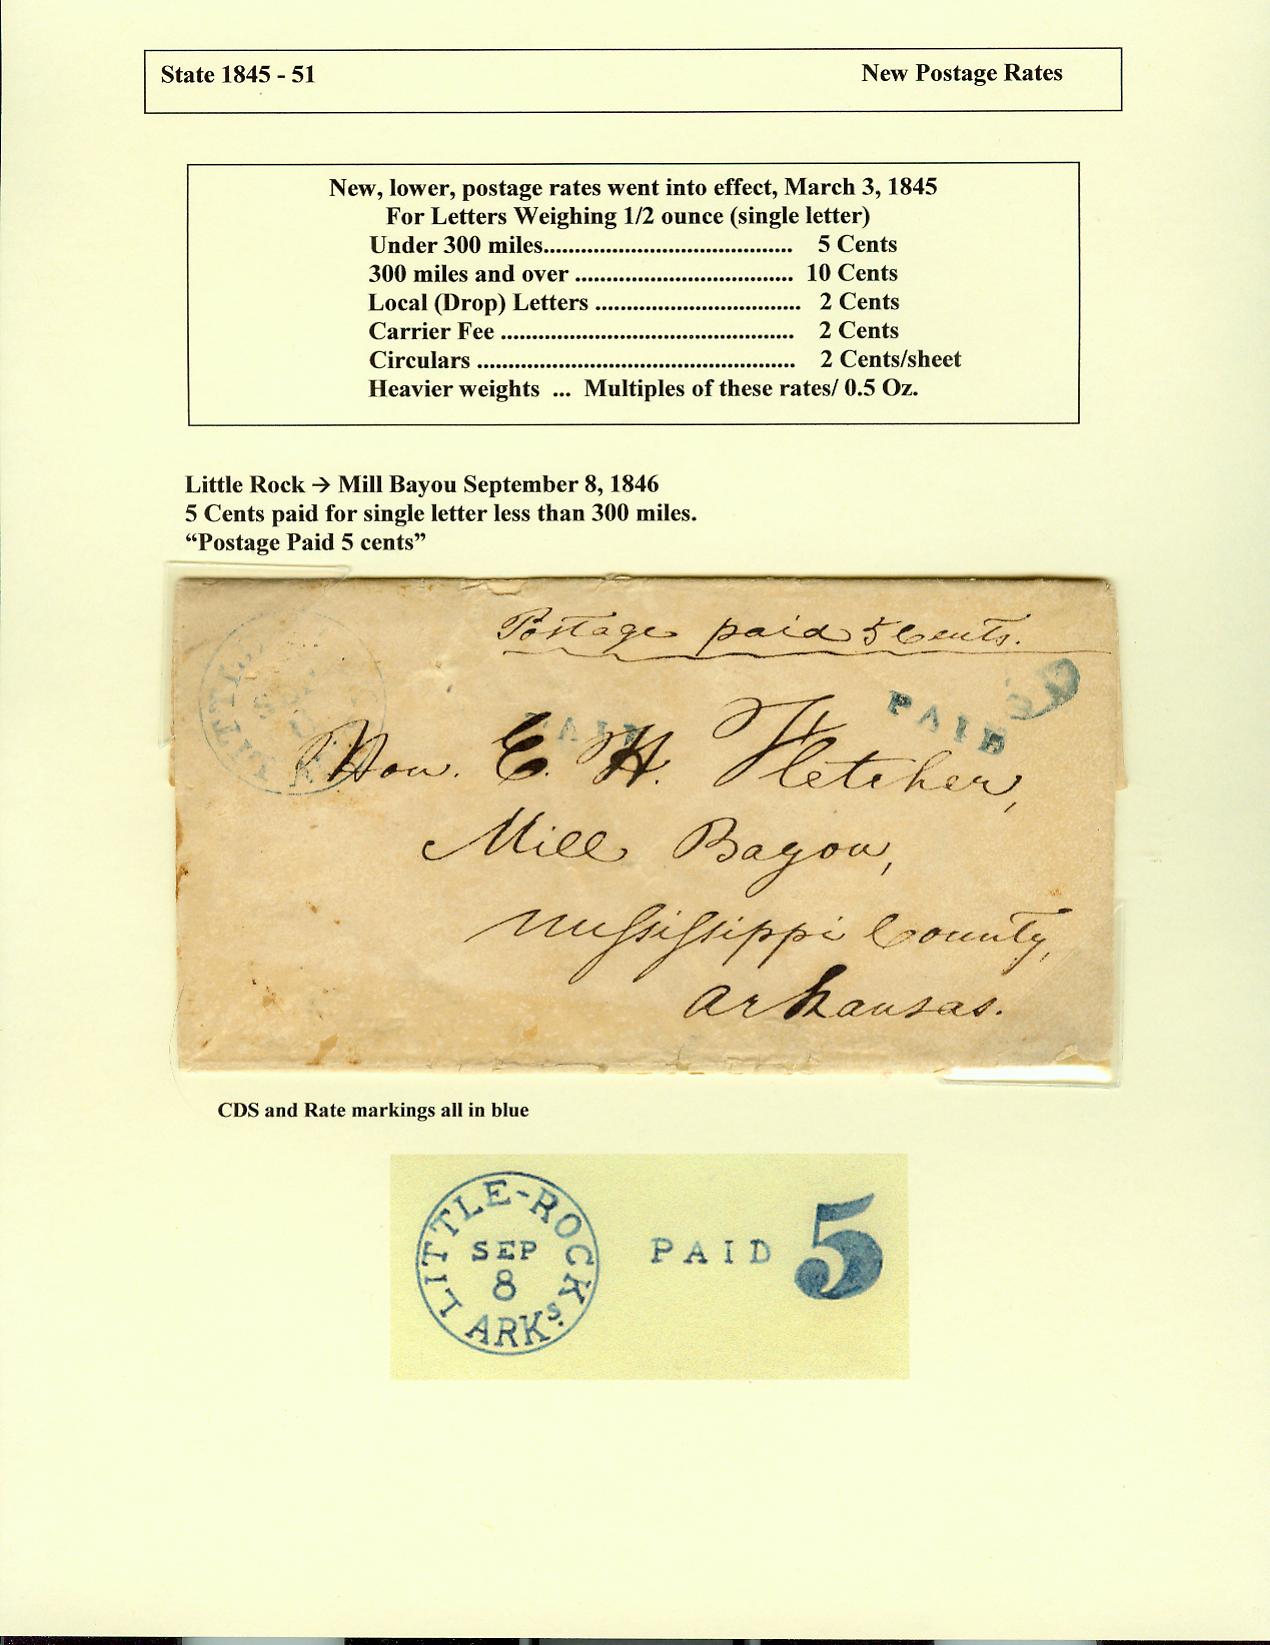 State 1845 - 51 New Postage Rates
New, lower, postage rates went into effect, March 3, 1845
For Letters Weighing 1/2 ounce (single letter)
Under 300 miles........................................ 5 Cents
300 miles and over ................................... 10 Cents
Local (Drop) Letters ................................. 2 Cents
Carrier Fee ............................................... 2 Cents
Circulars ................................................... 2 Cents/sheet
Heavier weights ... Multiples of these rates/ 0.5 Oz.
Little Rock → Mill Bayou September 8, 1846
5 Cents paid for single letter less than 300 miles.
“Postage Paid 5 cents”
Postage paid 5 Cents.
LITTLE
PAID
PAID
5
Hon. E. H. Fletcher,
Mill Bayou,
Mississippi County,
Arkansas.
CDS and Rate markings all in blue
LITTLE-ROCK
SEP
8
ARKS.
PAID 5